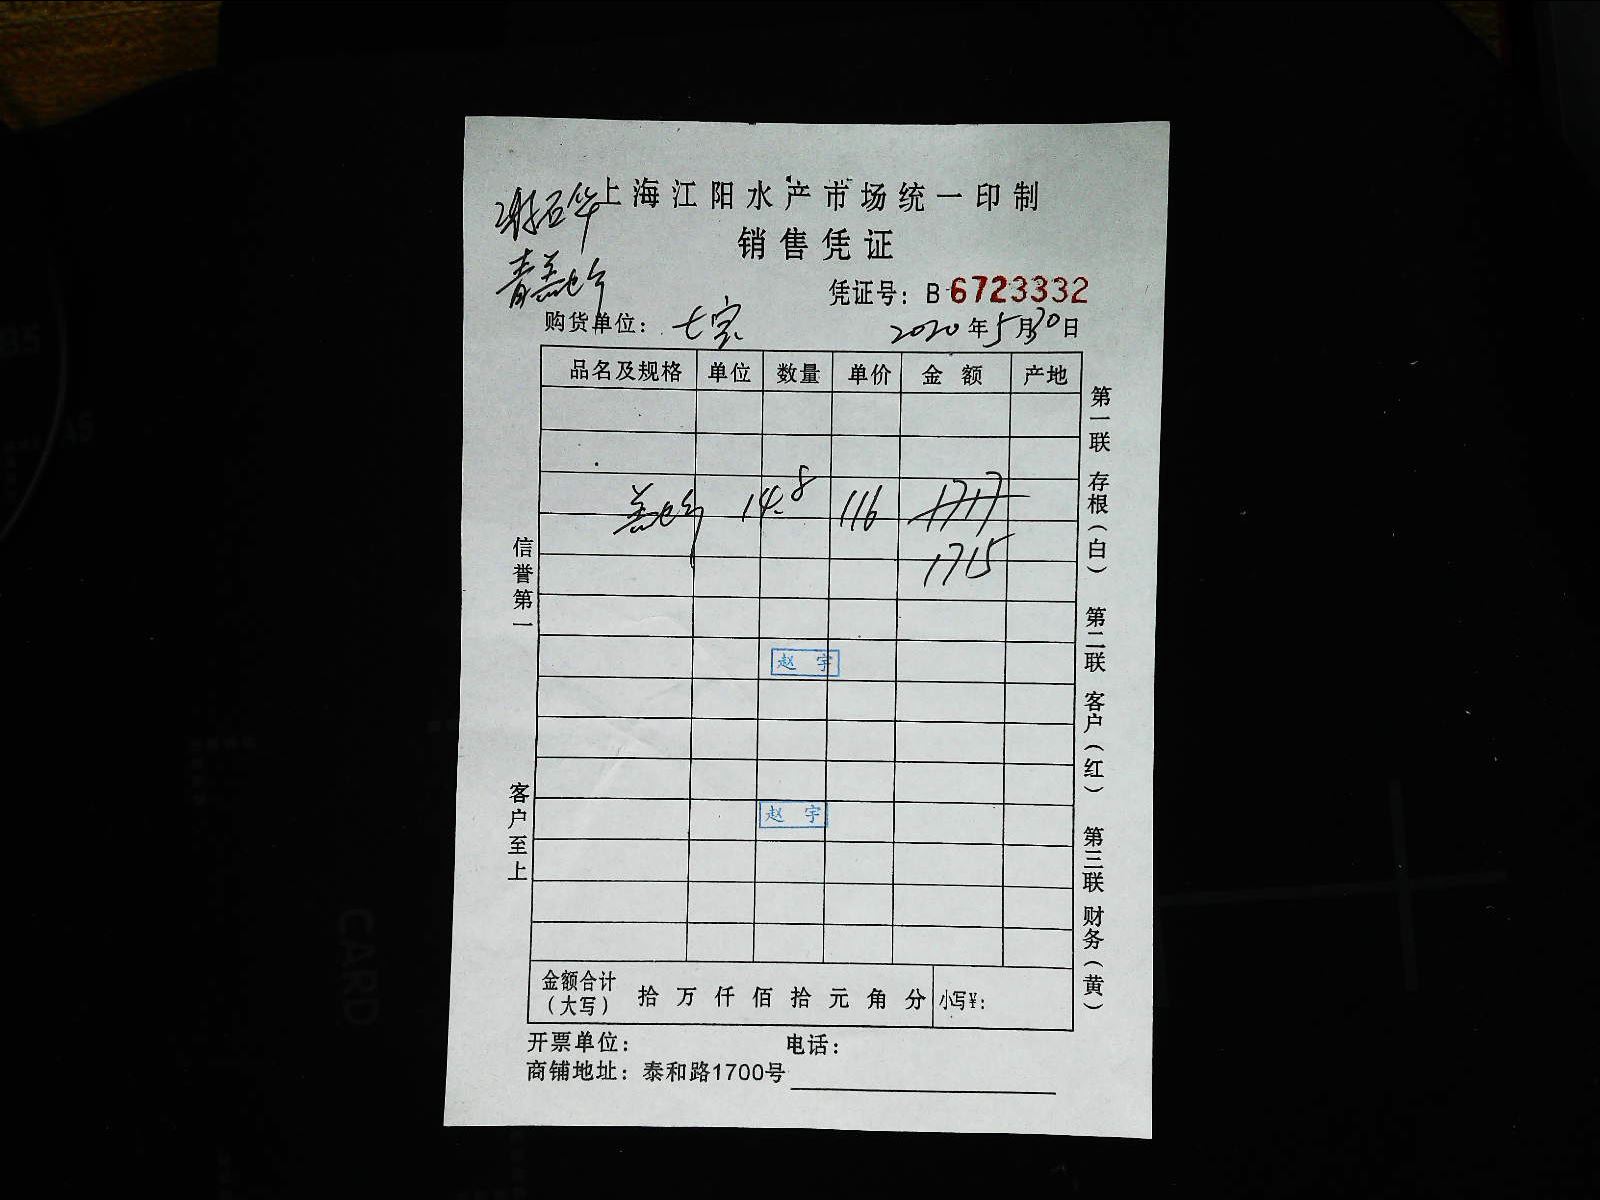 上海江阳水产市场统一印制
销售凭证
凭证号：B 6723332
购货单位：七宝 2020年5月30日
品名及规格 单位 数量 单价 金额 产地
14.8 116 1717
1715
赵宇
赵宇
金额合计（大写） 拾万仟佰拾元角分 小写¥：
开票单位： 电话：
商铺地址：泰和路1700号
信誉第一
客户至上
第一联 存根（白）
第二联 客户（红）
第三联 财务（黄）